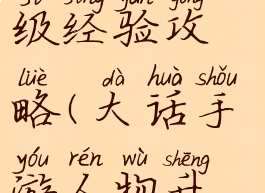 级经验攻
lüè dà huà shǒu
略(大话手
yóu rén wù shēng
游人物升